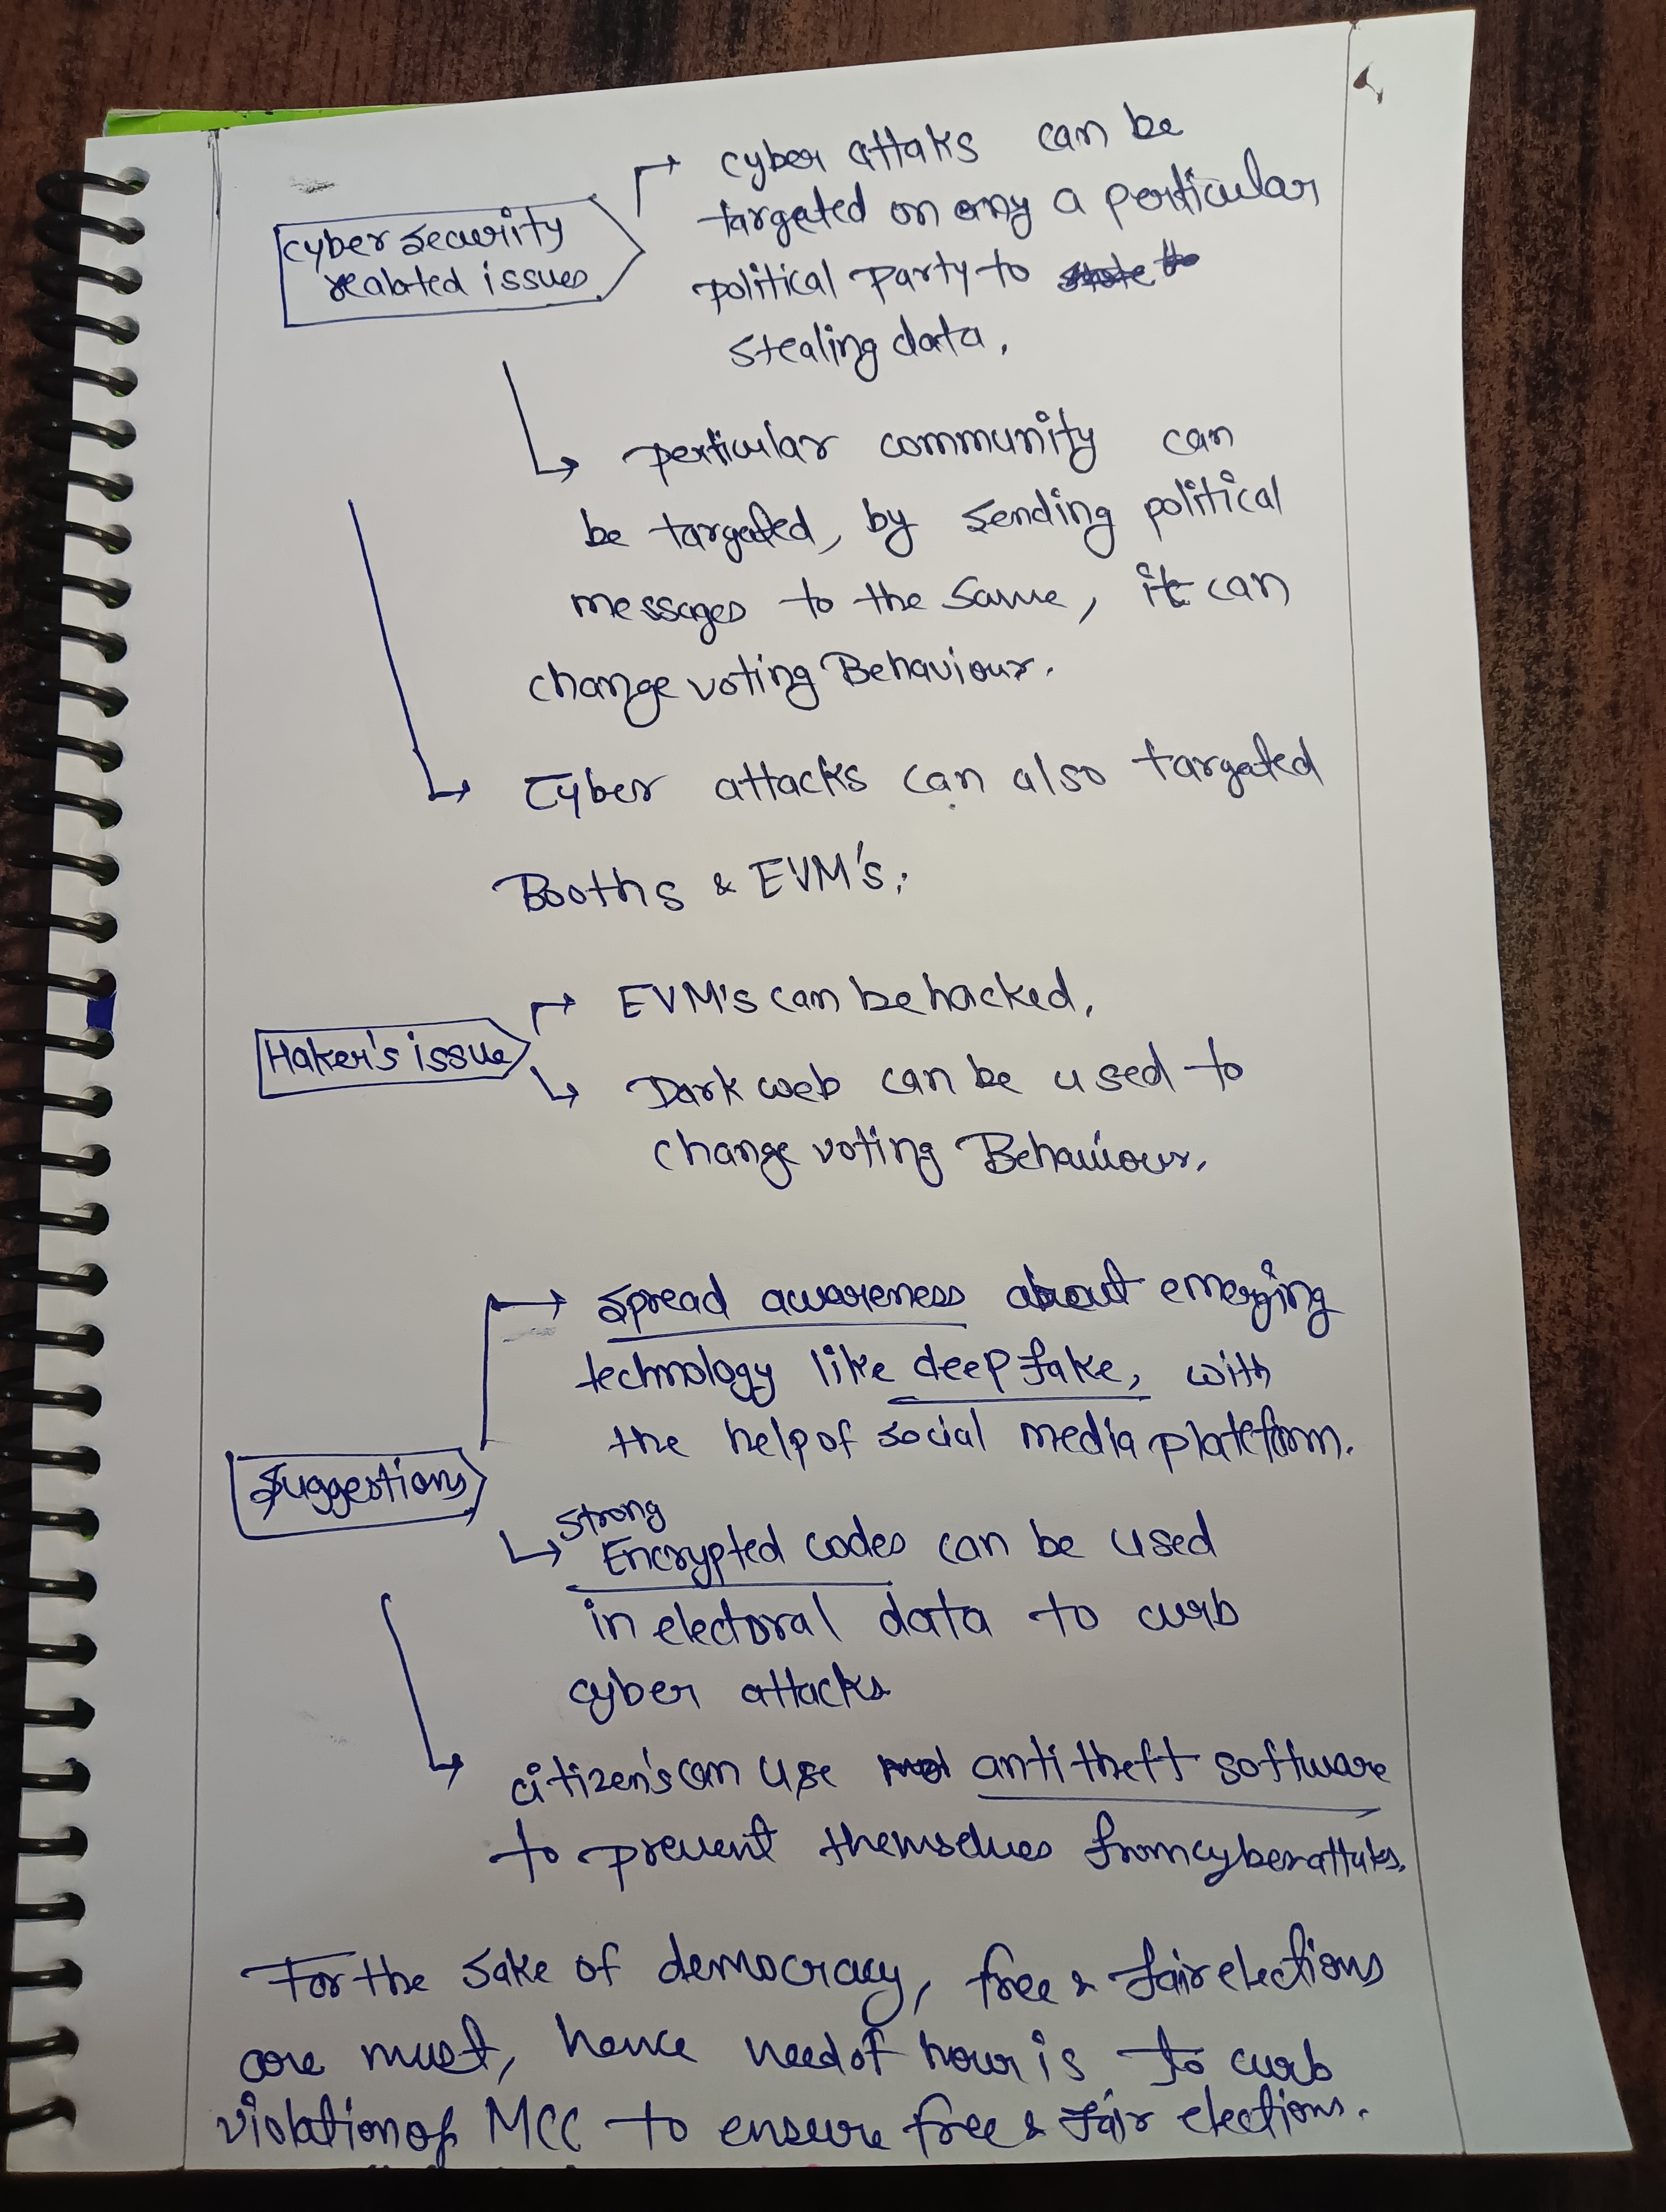 cyber security
realated issues
cyber attaks can be
targeted on any a perticular
political party to
stealing data.
perticular community can
be targeted, by sending political
messages to the same, it can
change voting Behaviour.
Cyber attacks can also targeted
Booths & EVM's.
Haker's issue
EVM's can be hacked.
Dark web can be used to
change voting Behaviour.
Suggestions
Spread awareness about emerging
technology like deep fake, with
the help of social media plateform.
Strong
Encrypted codes can be used
in electoral data to curb
cyber attacks
citizen's can use anti theft software
to prevent themselves from cyber attaks.
For the sake of democracy, free & fair elections
are must, hence need of hour is to curb
violation of MCC to ensure free & fair elections.